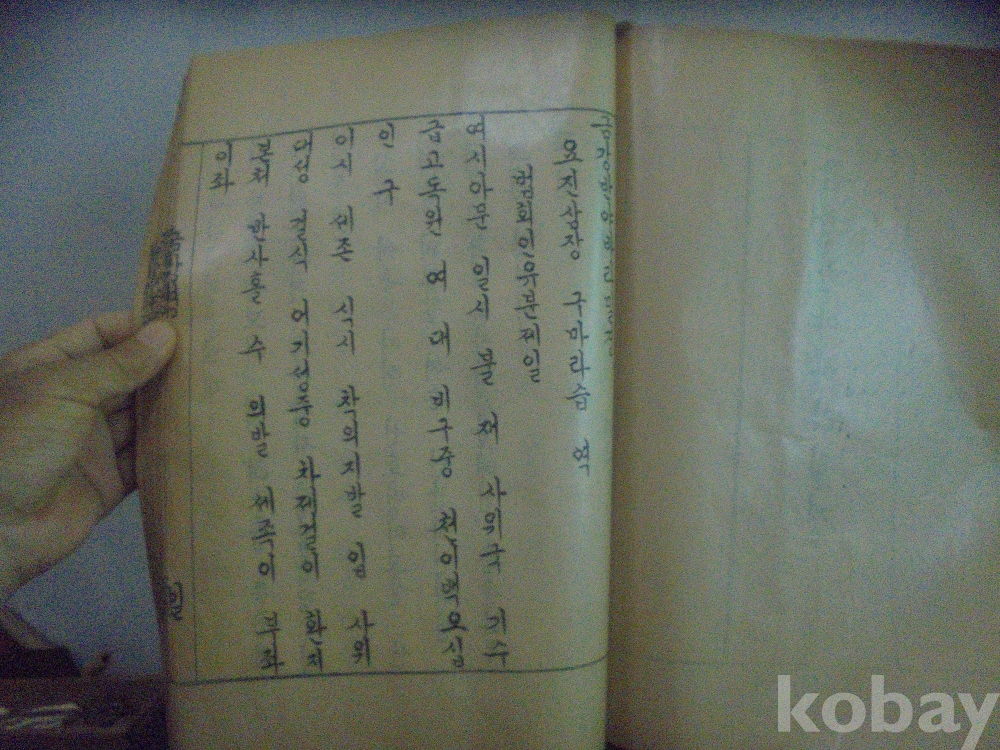 요진삼장 구마라습 역
법회인유분제일
여시아문 일시 불 재 사위국 기수
급고독원 여 대 비구중 천이백오십
인 구
이시 세존 식시 착의지발 입 사위
대성 걸식 어기성중 차제걸이 환지
본처 반사흘 수 의발 세족이 부좌
이좌
일
kobay